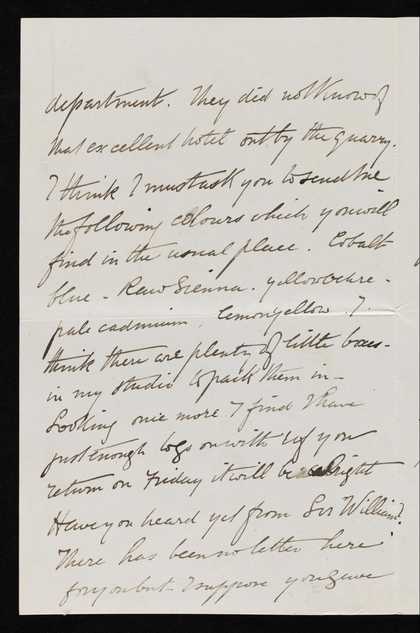 department. They did not know of
that excellent hotel out by the quarry.
I think I must ask you to send me
the following colours which you will
find in the usual place. Cobalt
blue - Raw Sienna. yellow ochre -
pale cadmium, lemon yellow. I
think there are plenty of little boxes
in my studio to pack them in -
Looking once more I find I have
just enough to go on with & if you
return on Friday it will be alright
Have you heard yet from Sir William?.
There has been no letter here
for you but I suppose you gave